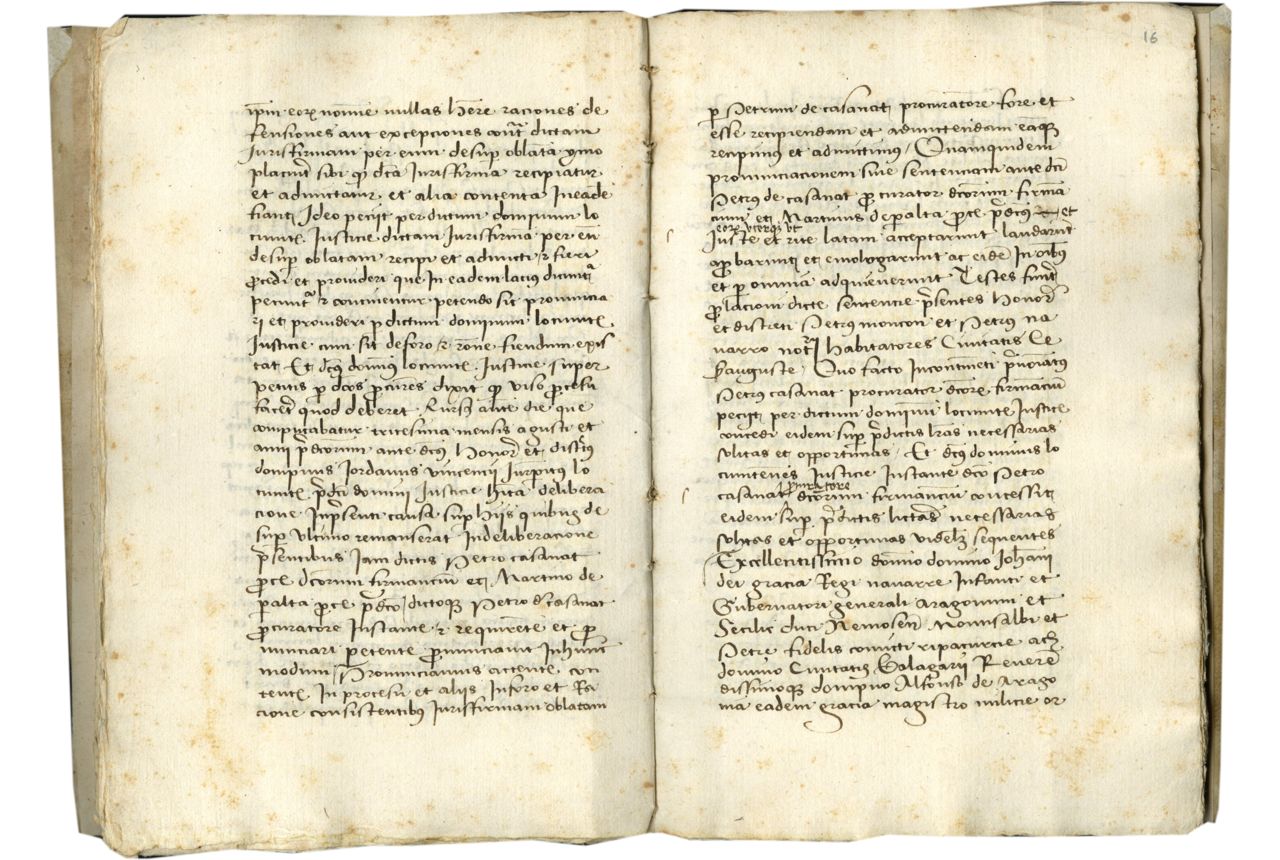 ipm̄ eorꝝ noīnie nullas hēre raciones de
fensiones aut excepciones cont̄ dictam
Jurisfirmam per eum desup oblatā ymo
placuit sibi qꝫ dc̄a Jurisfirma recipiatur
et admictatur et alia contenta Ineadē
fiant Ideo peciit per dictum dompnum lo
cumtē. Justicie dictam Jurisfirmā per eū
desup oblatam recipi et admicti ⁊ fieri
ꝓcedi et provideri que In eadem lacius dicunt̄
petunt̄ ⁊ continentur petendo sic pronuncia
ri et provideri ꝑ dictum dominum locumtē.
Justicie cum sic deforo ⁊ rōne fiendum exis
tat Et dc̄s domīns locumtē. Justicie super
petitis ꝑ dc̄os ꝓcūres dixit qꝫ viso ꝓcesu
facer̄ quod deberet Rurs̄ ante die que
computabatur tricesima mensis agusti et
anni p̄dcōrum ante dc̄us Honor̄ et discr̄us
dompnus Jordanus vincencii Jurp̄itus lo
cumtē. p̄dc̄i domini Justicie hīta delibera
cione Inp̄senti causa sup hiis quibus de
sup ultimo remanserat Indeliberacione
p̄sentibus Jam dictis Petro casanat
ꝓce dcōrum firmancium et Martino de
peralta ꝓce p̄dc̄o dictoqꝫ Petro de casanat
ꝓcuratore Instante ⁊ requirēte et ꝓ
nunciari petente ꝓnunciavit Inhunc
modum Pronunciamus attente con
tentē. In procesu et aliis Inforo et Ra
cione consistentibus Jurisfirmam oblatam
16
ꝑ Petrum de casanat procuratorē fore et
esse recipiendam et admictendam eamqꝫ
recipimus et admictimus / Quamquidem
pronunciacionem sive sentenciam ante dc̄i
Petrus de casanat ꝓcurator dcōrum firmā
cium et Martinus de peralta ꝓce p̄dcūs et
eorꝝ uterqꝫ ut
Juste et rite latam acceptarunt laudarūt
aꝓbarunt et emologarunt ac eidē In oībus
et ꝑ omnia adquieverunt Testes fuer̄t
ꝓlacioni dicte sentencie p̄sentes Honor̄
et discreti Petrus moncon et Petrus na
varro not̄ habitatores Civitatis Ce
s̄auguste / Quo facto Incontineti p̄noīatus
Petrus casanat procurator dcōrū firmāciū
peciit per dictum dominū locumtē Justicie
concedi eidem sup p̄dictis lr̄as necessarias
solitas et opportunas / Et dc̄s dominus lo
cumtenēs Justicie Instante dc̄o Petro
ꝓcuratore
casanat dcōrum firmanciū concessit
eidem sup p̄dictis licteras necessarias
solitas et opportunas videlꝫ sequentes
Excellentissimo domīo domino Johāni
dei gracia Regi navarre Infanti et
Gubernatori generali aragonum et
Secilie duci Nemosen̄ Montisalbi et
Petre fidelis comicti ripacurcie ac
domino Civitatis Balagarii Reverē
dissimoqꝫ dompno Alfonso de Arago
nia eadem gracia magistro milicie or